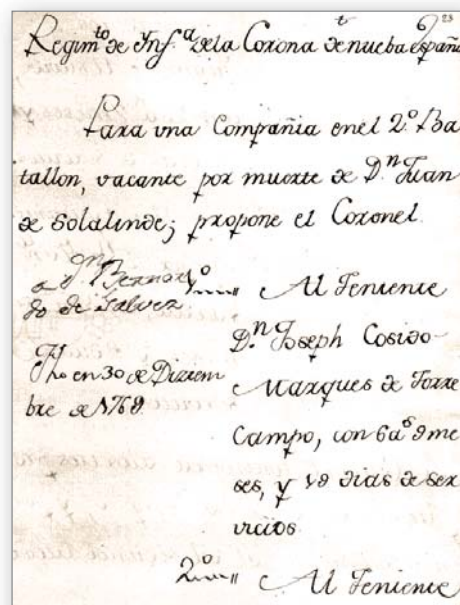 23
Regim.to de Ynf.a dela Corona de nueba España
Para vna Compañia enel 2.o Ba
tallon, vacante por muerte de D.n Juan
de Solalinde; propone el Coronel.
a D.n Bernar
do de Galvez
Fho en 30 de Diziem
bre de 1769
1.o Al Teniente
D.n Joseph Cosido
Marques de Torre
Campo, con 6 a.s 9 me
ses, y 19 dias de ser
vicios
2.o Al Teniente